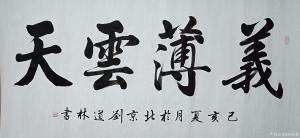 義薄雲天
己亥夏月於北京劉道林書